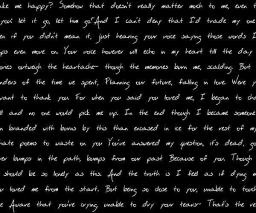 ke me happy? Somehow that doesn't really matter much to me, even t
you! let it go, let him go! And I can't deny that I'd trade my one
en if you didn't mean it, just hearing your voice saying those words I
ps even more on Your voice however will echo in my heart till the day
ones outweigh the heartache- though the memories burn me, scalding. But
nders of the time we spent, Planning our future, falling in love. Were y
want to thank you. For when you said you loved me, I began to cha
ll and no one would pick me up. In the end though I became someone
n branded with burns by this than encased in ice for the rest of my
nate poems to waste on you You've answered my question, it's dead, go
er bumps in the path, bumps from our past Because of you. Though
should be so lonely as this And the truth is I feel as if dying m
u loved me from the start. But being so close to you, unable to touch
e Aware that you're crying, unable to dry your tears- That's the ve